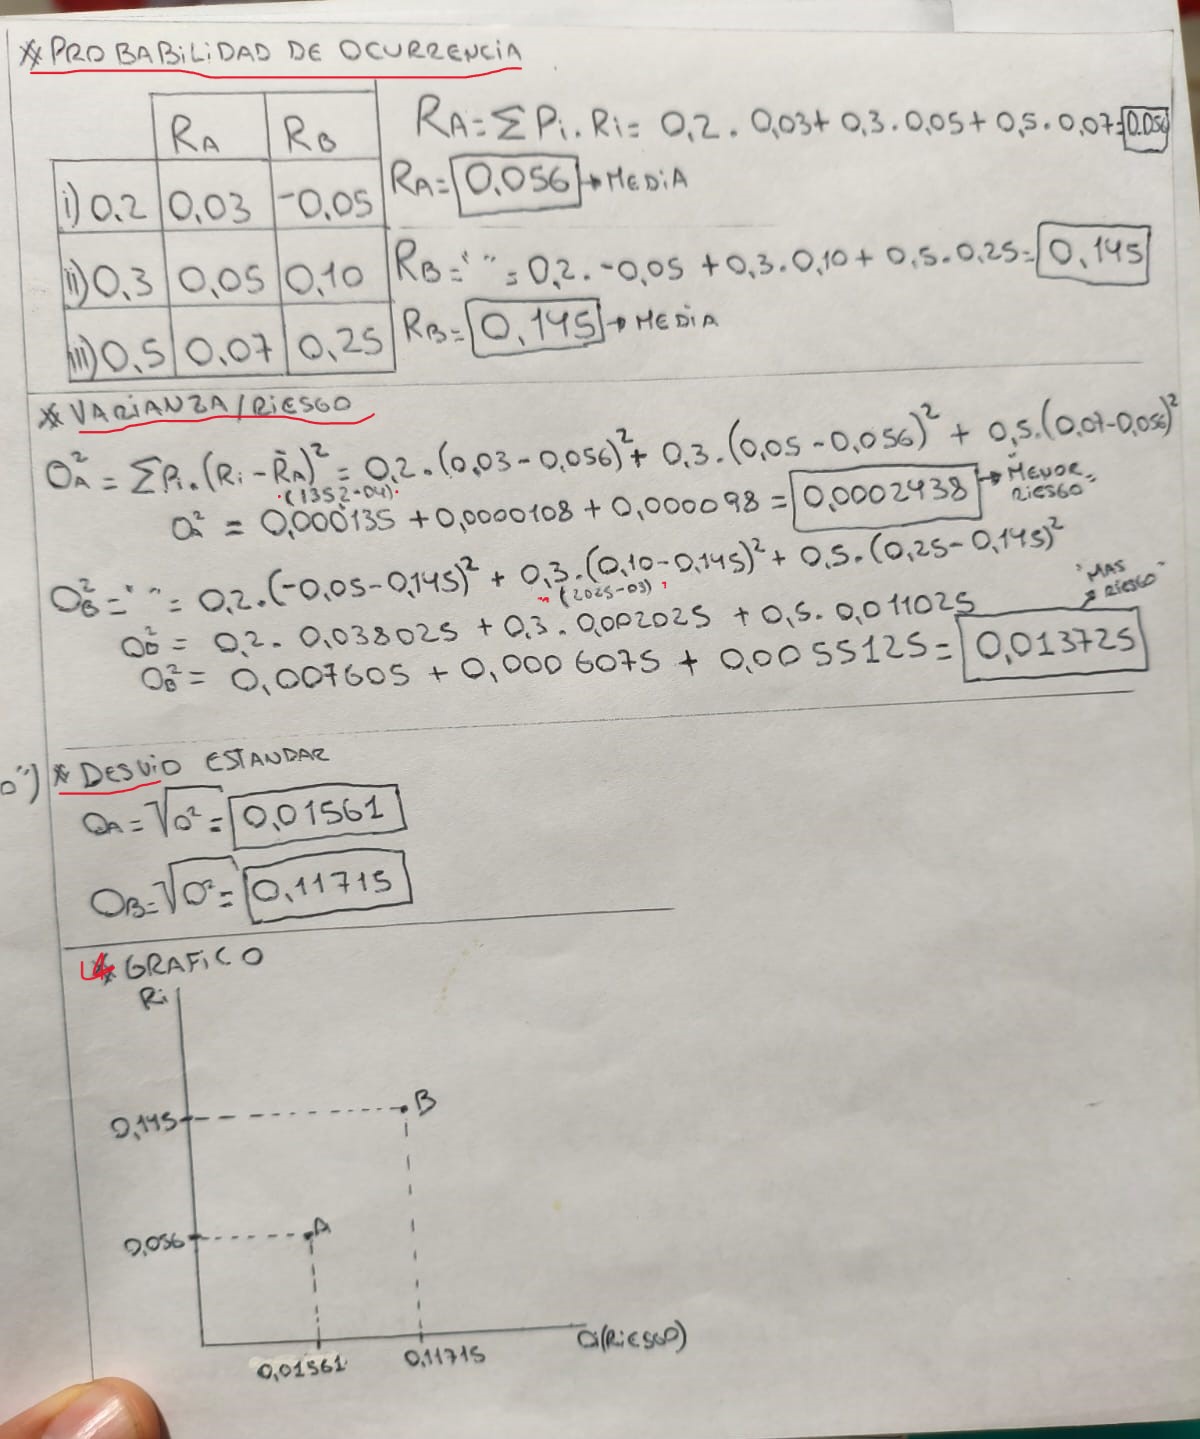 * PROBABILIDAD DE OCURRENCIA
RA RB
i) 0.2 0,03 -0.05
ii) 0,3 0,05 0,10
iii) 0,5 0,07 0,25
RA = Σ Pi . Ri = 0,2 . 0,03 + 0,3 . 0,05 + 0,5 . 0,07 = 0.056
RA = 0,056 → MEDIA
RB = " " = 0,2 . -0,05 + 0,3 . 0,10 + 0,5 . 0,25 = 0,145
RB = 0,145 → MEDIA
* VARIANZA/RIESGO
σ²A = Σ Pi . (Ri - R̄A)² = 0,2 . (0,03 - 0,056)² + 0,3 . (0,05 - 0,056)² + 0,5 . (0,07 - 0,056)²
(1352-04)
σ² = 0,000135 + 0,0000108 + 0,000098 = 0,0002438 → MENOR RIESGO
σ²B = " " = 0,2 . (-0,05 - 0,145)² + 0,3 . (0,10 - 0,145)² + 0,5 . (0,25 - 0,145)²
" (2025-03) "
σ²B = 0,2 . 0,038025 + 0,3 . 0,002025 + 0,5 . 0,011025
"MAS RIESGO"
σB² = 0,007605 + 0,0006075 + 0,0055125 = 0,013725
* DESVIO ESTANDAR
σA = √σ² = 0,01561
σB = √σ² = 0,11715
* GRAFICO
Ri
0,145 B
0,056 A
0,01561 0,11715
σi (RIESGO)